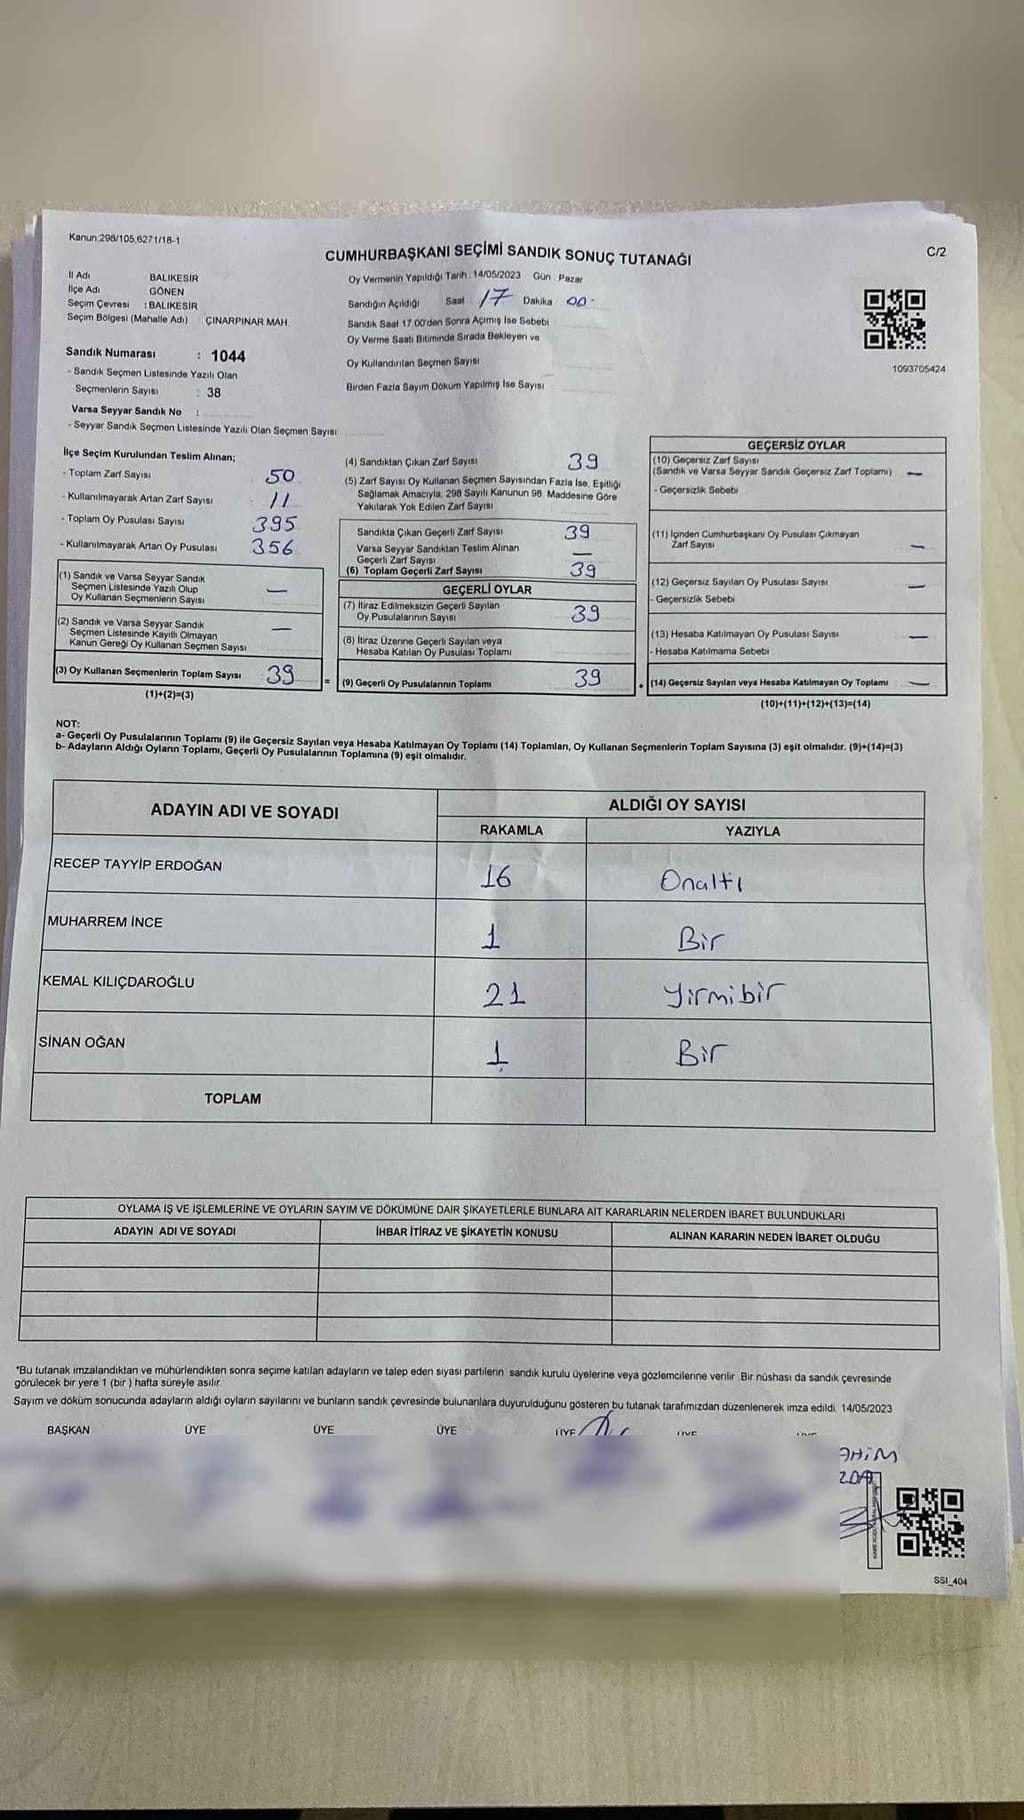 Kanun.298/105,6271/18-1
CUMHURBAŞKANI SEÇİMİ SANDIK SONUÇ TUTANAĞI
C/2
İl Adı : BALIKESİR
İlçe Adı : GÖNEN
Seçim Çevresi : BALIKESİR
Seçim Bölgesi (Mahalle Adı) ÇINARPINAR MAH.
Sandık Numarası : 1044
- Sandık Seçmen Listesinde Yazılı Olan
Seçmenlerin Sayısı : 38
Varsa Seyyar Sandık No :
- Seyyar Sandık Seçmen Listesinde Yazılı Olan Seçmen Sayısı
Oy Vermenin Yapıldığı Tarih : 14/05/2023 Gün : Pazar
Sandığın Açıldığı Saat 17 Dakika 00
Sandık Saat 17.00'den Sonra Açımış İse Sebebi
Oy Verme Saati Bitiminde Sırada Bekleyen ve
Oy Kullandırılan Seçmen Sayısı
Birden Fazla Sayım Döküm Yapılmış İse Sayısı
1093705424
İlçe Seçim Kurulundan Teslim Alınan;
- Toplam Zarf Sayısı 50
- Kullanılmayarak Artan Zarf Sayısı 11
- Toplam Oy Pusulası Sayısı 395
- Kullanılmayarak Artan Oy Pusulası 356
(1) Sandık ve Varsa Seyyar Sandık
Seçmen Listesinde Yazılı Olup
Oy Kullanan Seçmenlerin Sayısı —
(2) Sandık ve Varsa Seyyar Sandık
Seçmen Listesinde Kayıtlı Olmayan
Kanun Gereği Oy Kullanan Seçmen Sayısı —
(3) Oy Kullanan Seçmenlerin Toplam Sayısı 39
(1)+(2)=(3)
(4) Sandıktan Çıkan Zarf Sayısı 39
(5) Zarf Sayısı Oy Kullanan Seçmen Sayısından Fazla İse, Eşitliği
Sağlamak Amacıyla, 298 Sayılı Kanunun 98. Maddesine Göre
Yakılarak Yok Edilen Zarf Sayısı
Sandıkta Çıkan Geçerli Zarf Sayısı 39
Varsa Seyyar Sandıktan Teslim Alınan
Geçerli Zarf Sayısı —
(6) Toplam Geçerli Zarf Sayısı 39
GEÇERLİ OYLAR
(7) İtiraz Edilmeksizin Geçerli Sayılan
Oy Pusulalarının Sayısı 39
(8) İtiraz Üzerine Geçerli Sayılan veya
Hesaba Katılan Oy Pusulası Toplamı
= (9) Geçerli Oy Pusulalarının Toplamı 39
GEÇERSİZ OYLAR
(10) Geçersiz Zarf Sayısı
(Sandık ve Varsa Seyyar Sandık Geçersiz Zarf Toplamı) —
- Geçersizlik Sebebi
(11) İçinden Cumhurbaşkanı Oy Pusulası Çıkmayan
Zarf Sayısı —
(12) Geçersiz Sayılan Oy Pusulası Sayısı —
- Geçersizlik Sebebi
(13) Hesaba Katılmayan Oy Pusulası Sayısı —
- Hesaba Katılmama Sebebi
+ (14) Geçersiz Sayılan veya Hesaba Katılmayan Oy Toplamı —
(10)+(11)+(12)+(13)=(14)
NOT:
a- Geçerli Oy Pusulalarının Toplamı (9) ile Geçersiz Sayılan veya Hesaba Katılmayan Oy Toplamı (14) Toplamları, Oy Kullanan Seçmenlerin Toplam Sayısına (3) eşit olmalıdır. (9)+(14)=(3)
b- Adayların Aldığı Oyların Toplamı, Geçerli Oy Pusulalarının Toplamına (9) eşit olmalıdır.
ADAYIN ADI VE SOYADI ALDIĞI OY SAYISI
RAKAMLA YAZIYLA
RECEP TAYYİP ERDOĞAN 16 Onaltı
MUHARREM İNCE 1 Bir
KEMAL KILIÇDAROĞLU 21 Yirmibir
SİNAN OĞAN 1 Bir
TOPLAM
OYLAMA İŞ VE İŞLEMLERİNE VE OYLARIN SAYIM VE DÖKÜMÜNE DAİR ŞİKAYETLERLE BUNLARA AİT KARARLARIN NELERDEN İBARET BULUNDUKLARI
ADAYIN ADI VE SOYADI İHBAR İTİRAZ VE ŞİKAYETİN KONUSU ALINAN KARARIN NEDEN İBARET OLDUĞU
*Bu tutanak imzalandıktan ve mühürlendikten sonra seçime katılan adayların ve talep eden siyasi partilerin sandık kurulu üyelerine veya gözlemcilerine verilir. Bir nüshası da sandık çevresinde
görülecek bir yere 1 (bir ) hafta süreyle asılır.
Sayım ve döküm sonucunda adayların aldığı oyların sayılarını ve bunların sandık çevresinde bulunanlara duyurulduğunu gösteren bu tutanak tarafımızdan düzenlenerek imza edildi. 14/05/2023
BAŞKAN ÜYE ÜYE ÜYE ÜYE ÜYE
SSI_404